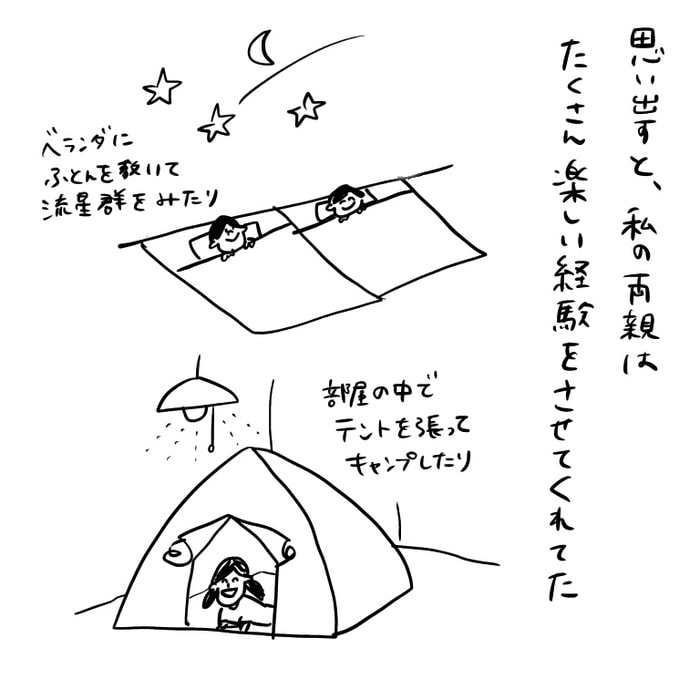 思い出すと、私の両親は
たくさん楽しい経験をさせてくれてた
ベランダに
ふとんを敷いて
流星群をみたり
部屋の中で
テントを張って
キャンプしたり